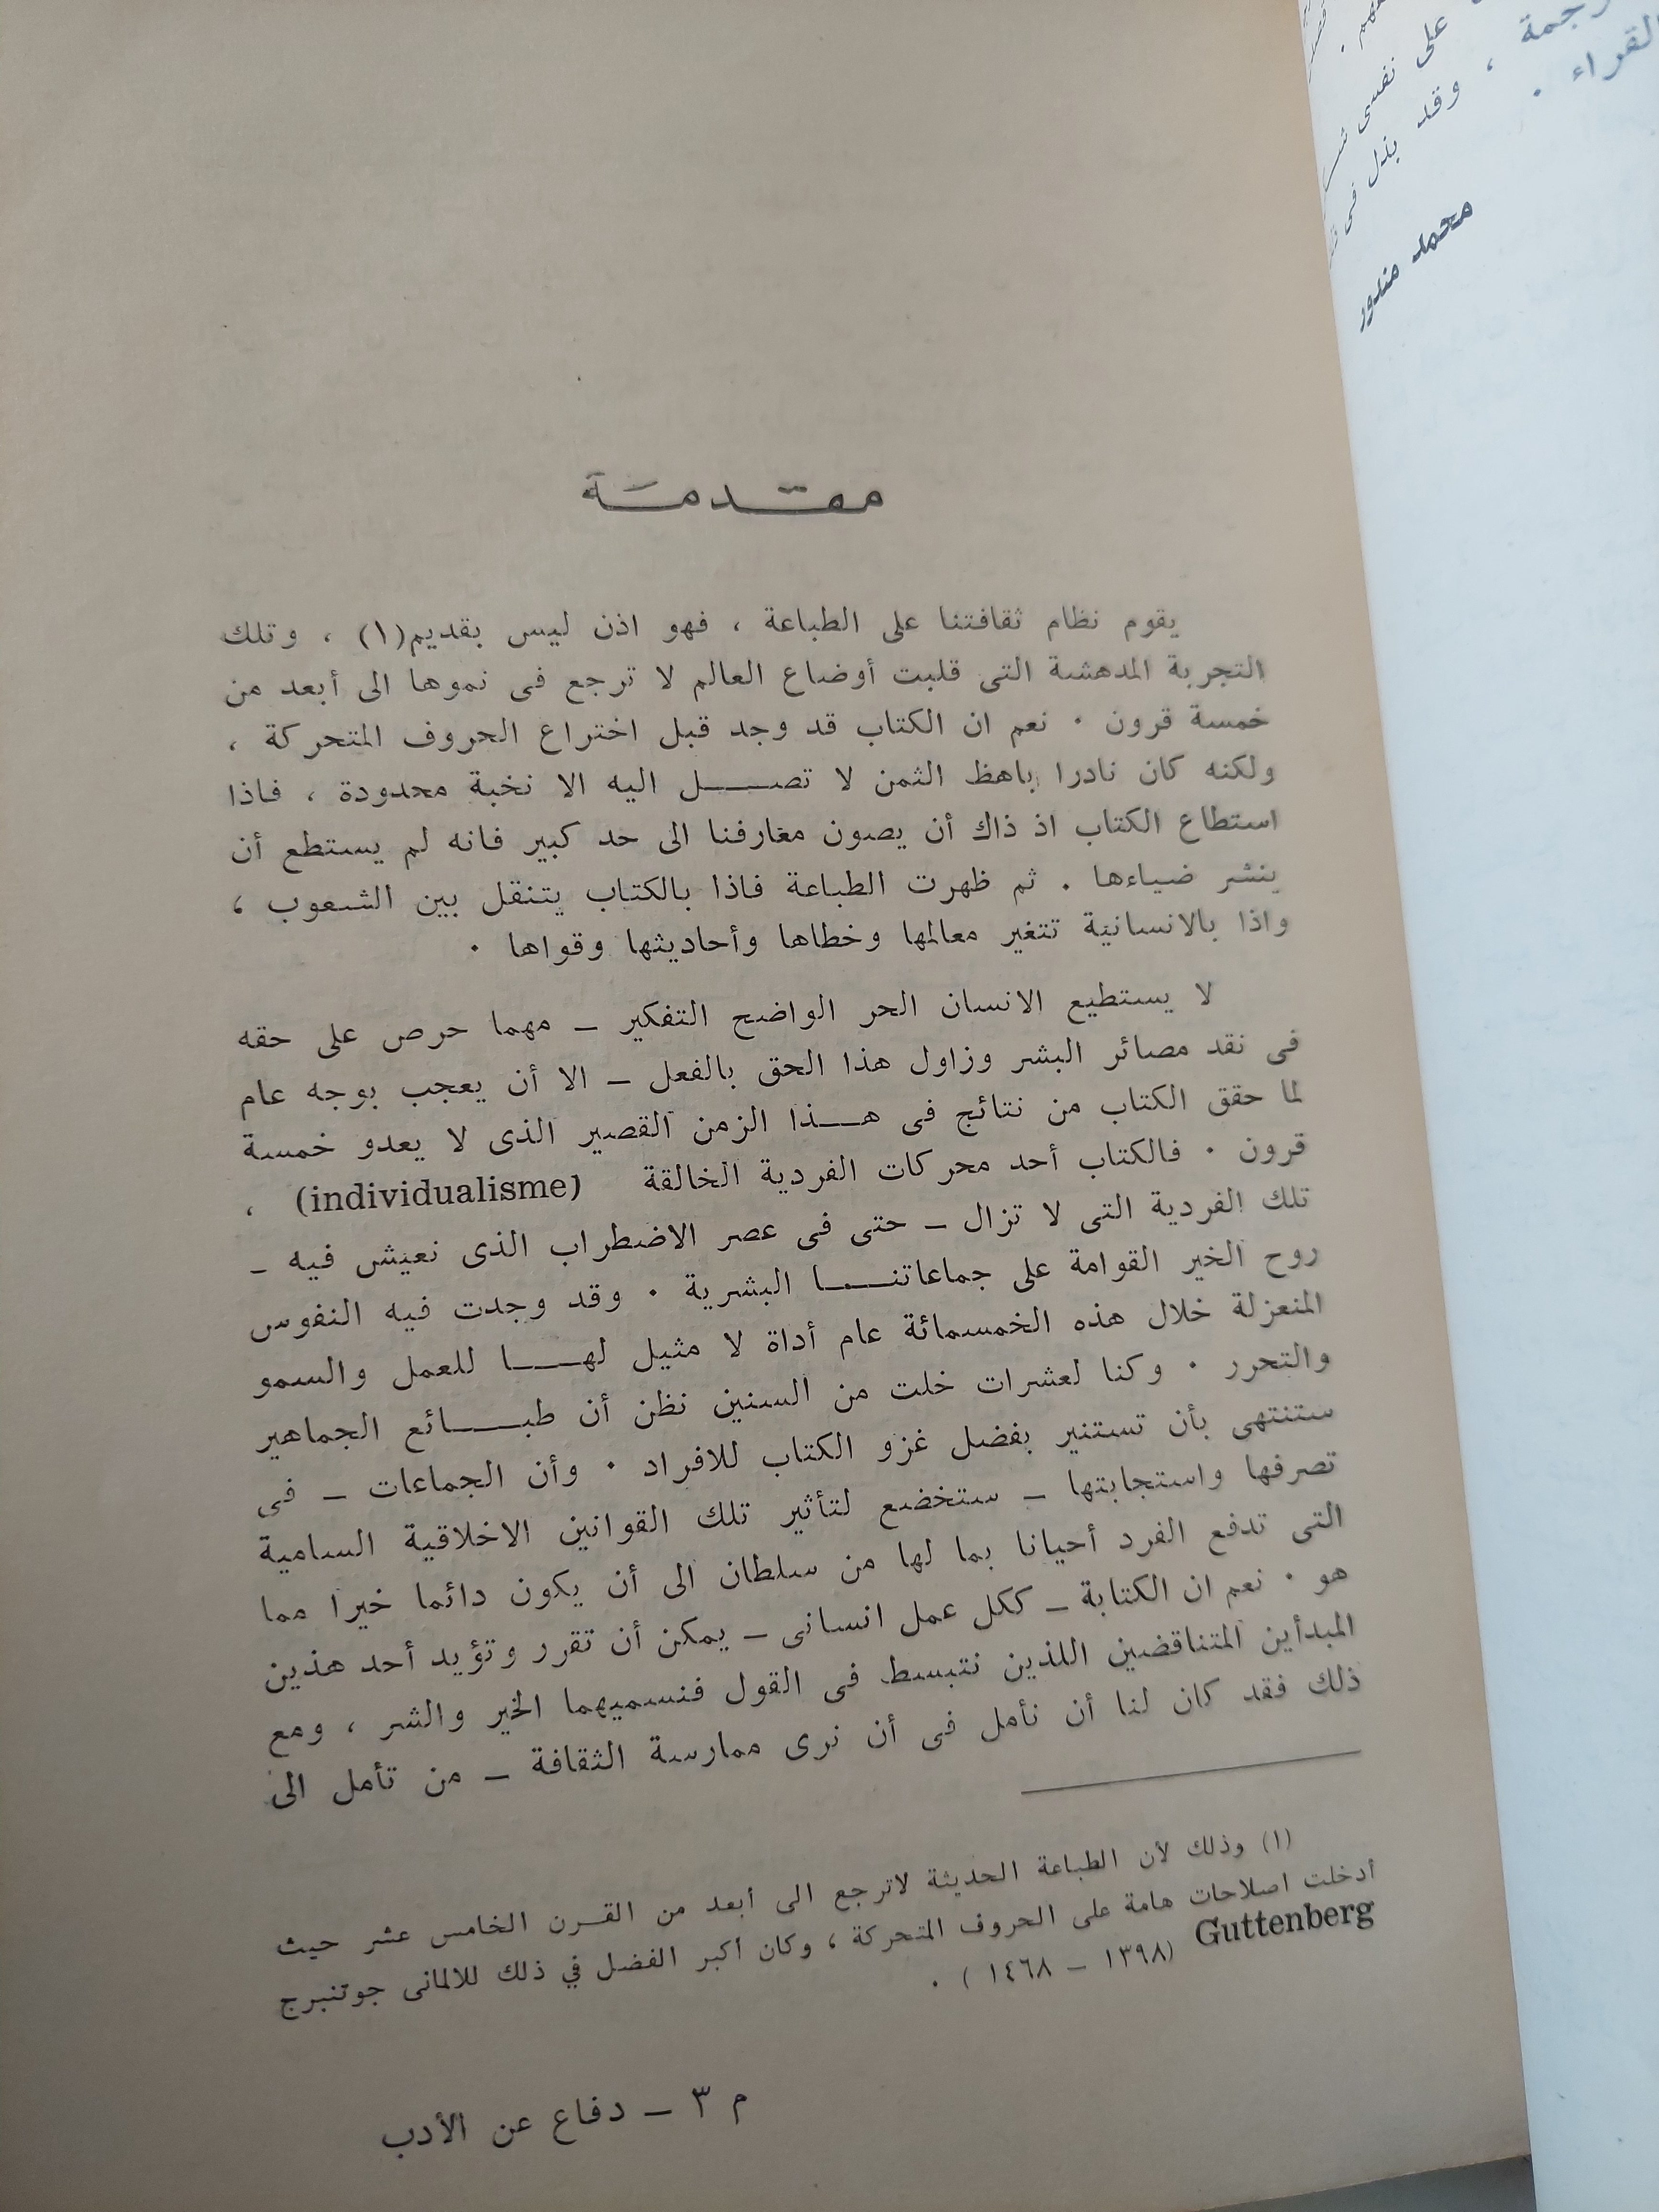 على نفسى
رجمة ، وقد بذل فى
القراء .
محمد مندور
مقدمة
يقوم نظام ثقافتنا على الطباعة ، فهو اذن ليس بقديم(١) ، وتلك
التجربة المدهشة التى قلبت أوضاع العالم لا ترجع فى نموها الى أبعد من
خمسة قرون . نعم ان الكتاب قد وجد قبل اختراع الحروف المتحركة ،
ولكنه كان نادرا باهظ الثمن لا تصل اليه الا نخبة محدودة ، فاذا
استطاع الكتاب اذ ذاك أن يصون معارفنا الى حد كبير فانه لم يستطع أن
ينشر ضياءها . ثم ظهرت الطباعة فاذا بالكتاب يتنقل بين الشعوب ،
واذا بالانسانية تتغير معالمها وخطاها وأحاديثها وقواها .
لا يستطيع الانسان الحر الواضح التفكير – مهما حرص على حقه
فى نقد مصائر البشر وزاول هذا الحق بالفعل – الا أن يعجب بوجه عام
لما حقق الكتاب من نتائج فى هذا الزمن القصير الذى لا يعدو خمسة
قرون . فالكتاب أحد محركات الفردية الخالقة (individualisme) ،
تلك الفردية التى لا تزال – حتى فى عصر الاضطراب الذى نعيش فيه –
روح الخير القوامة على جماعاتنا البشرية . وقد وجدت فيه النفوس
المنعزلة خلال هذه الخمسمائة عام أداة لا مثيل لها للعمل والسمو
والتحرر . وكنا لعشرات خلت من السنين نظن أن طبائع الجماهير
ستنتهى بأن تستنير بفضل غزو الكتاب للافراد . وأن الجماعات – فى
تصرفها واستجابتها – ستخضع لتأثير تلك القوانين الاخلاقية السامية
التى تدفع الفرد أحيانا بما لها من سلطان الى أن يكون دائما خيرا مما
هو . نعم ان الكتابة – ككل عمل انسانى – يمكن أن تقرر وتؤيد أحد هذين
المبدأين المتناقضين اللذين نتبسط فى القول فنسميهما الخير والشر ، ومع
ذلك فقد كان لنا أن نأمل فى أن نرى ممارسة الثقافة – من تأمل الى
(١) وذلك لأن الطباعة الحديثة لاترجع الى أبعد من القرن الخامس عشر حيث
أدخلت اصلاحات هامة على الحروف المتحركة ، وكان أكبر الفضل في ذلك للالمانى جوتنبرج
Guttenberg (١٣٩٨ – ١٤٦٨ ) .
م ٣ – دفاع عن الأدب